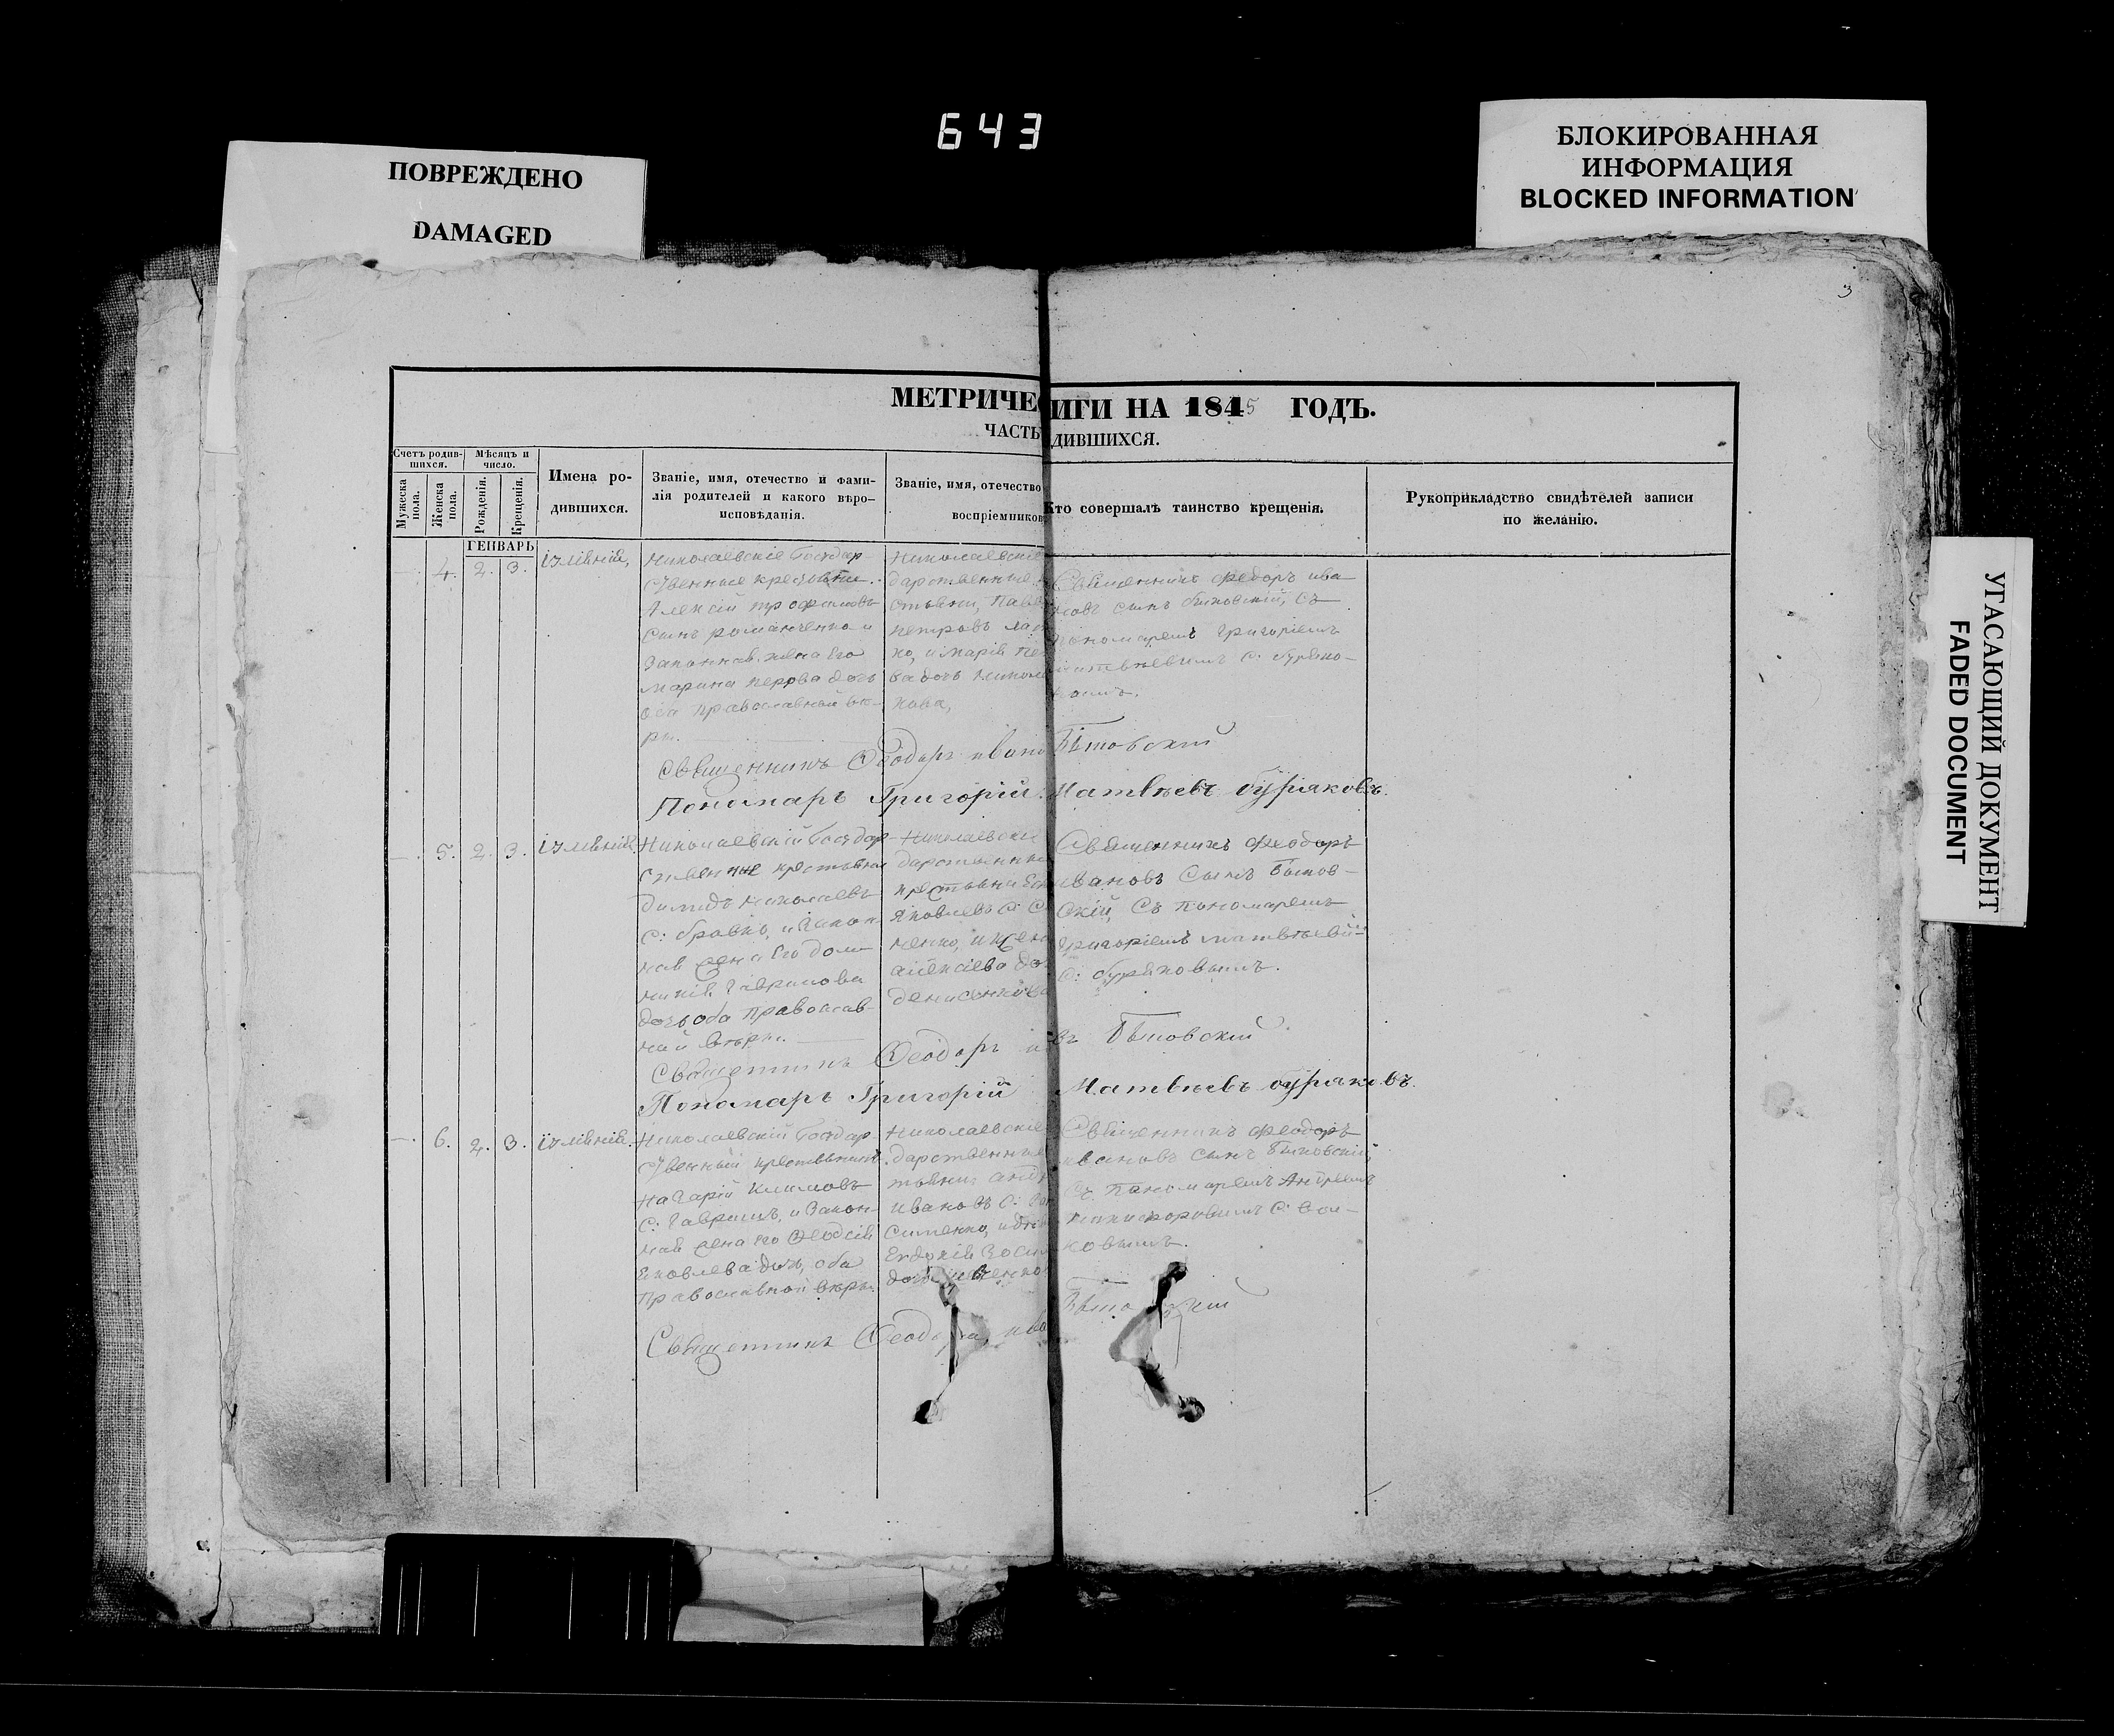 643
ПОВРЕЖДЕНО
DAMAGED
БЛОКИРОВАННАЯ
ИНФОРМАЦИЯ
BLOCKED INFORMATION
УГАСАЮЩИЙ ДОКУМЕНТ
FADED DOCUMENT
3
МЕТРИЧЕ
ЧАСТЬ
ИГИ НА 1845 ГОДЪ.
ДИВШИХСЯ.
Счетъ родив-
шихся.
Мужеска
пола.
Женска
пола.
Мѣсяцъ и
число.
Рожденія.
Крещенія.
Имена ро-
дившихся.
Званіе, имя, отечество и фами-
лія родителей и какого вѣро-
исповѣданія.
Званіе, имя, отечество
воспріемников
Кто совершалъ таинство крещенія.
Рукоприкладство свидѣтелей записи
по желанію.
ГЕНВАРЬ
4. 2. 3. Іуліанія,
Николаевскіе Государ-
ственные крестьяне
Алексій Трофимовъ
сынъ романченко и
законная жена его
марина петрова дочь
оба православной вѣ-
ры.
Николаевскіе
дарственные
стьяни, Павел
петровъ
ко, и марія Пе
ва дочь
кова,
Священникъ Федоръ ива
новъ сынъ Бытовскій, съ
пономаремъ Григоріемъ
матвѣевымъ С: буряко-
вымъ.
Священникъ Ѳеодоръ ивано Бытовскій
Пономарь Григорій Матвѣевъ буряковъ.
5. 2. 3. Іуліанія
Николаевскій Государ-
ственные крестьяни
Димидъ Николаевъ
С: бровко, и закон-
ная жена его дом-
никія Гаврилова
дочь оба православ-
ной вѣры.
Николаевскі
дарственны
крестьяни
Яковлевъ С: С
ченко, и жен
алексіева до
денисенкова
Священникъ Феодоръ
ивановъ Сынъ Бытов-
скій, Съ пономаремъ
Григоріемъ матвѣевы-
С: буряковымъ.
Священникъ Ѳеодоръ и въ Бытовскій
Пономарь Григорій Матвѣевъ буряковъ.
6. 2. 3. Іуліанія.
Николаевскій Государ-
ственный крестьянинъ
Назарій Климовъ
С: Гавришъ, и Закон-
ная жена его Ѳеодсія
Яковлева дочь, оба
Православной вѣры.
Николаевскіе
дарственные
тьяни Андр
ивановъ С:
ситенко, и дѣ
Евдокія
дочь
Священникъ Феодоръ
ивановъ сынъ Бытовскій,
Съ Пономаремъ Андреемъ
С: вол-
ковымъ.
Священникъ Ѳеодоръ ива Быто кій